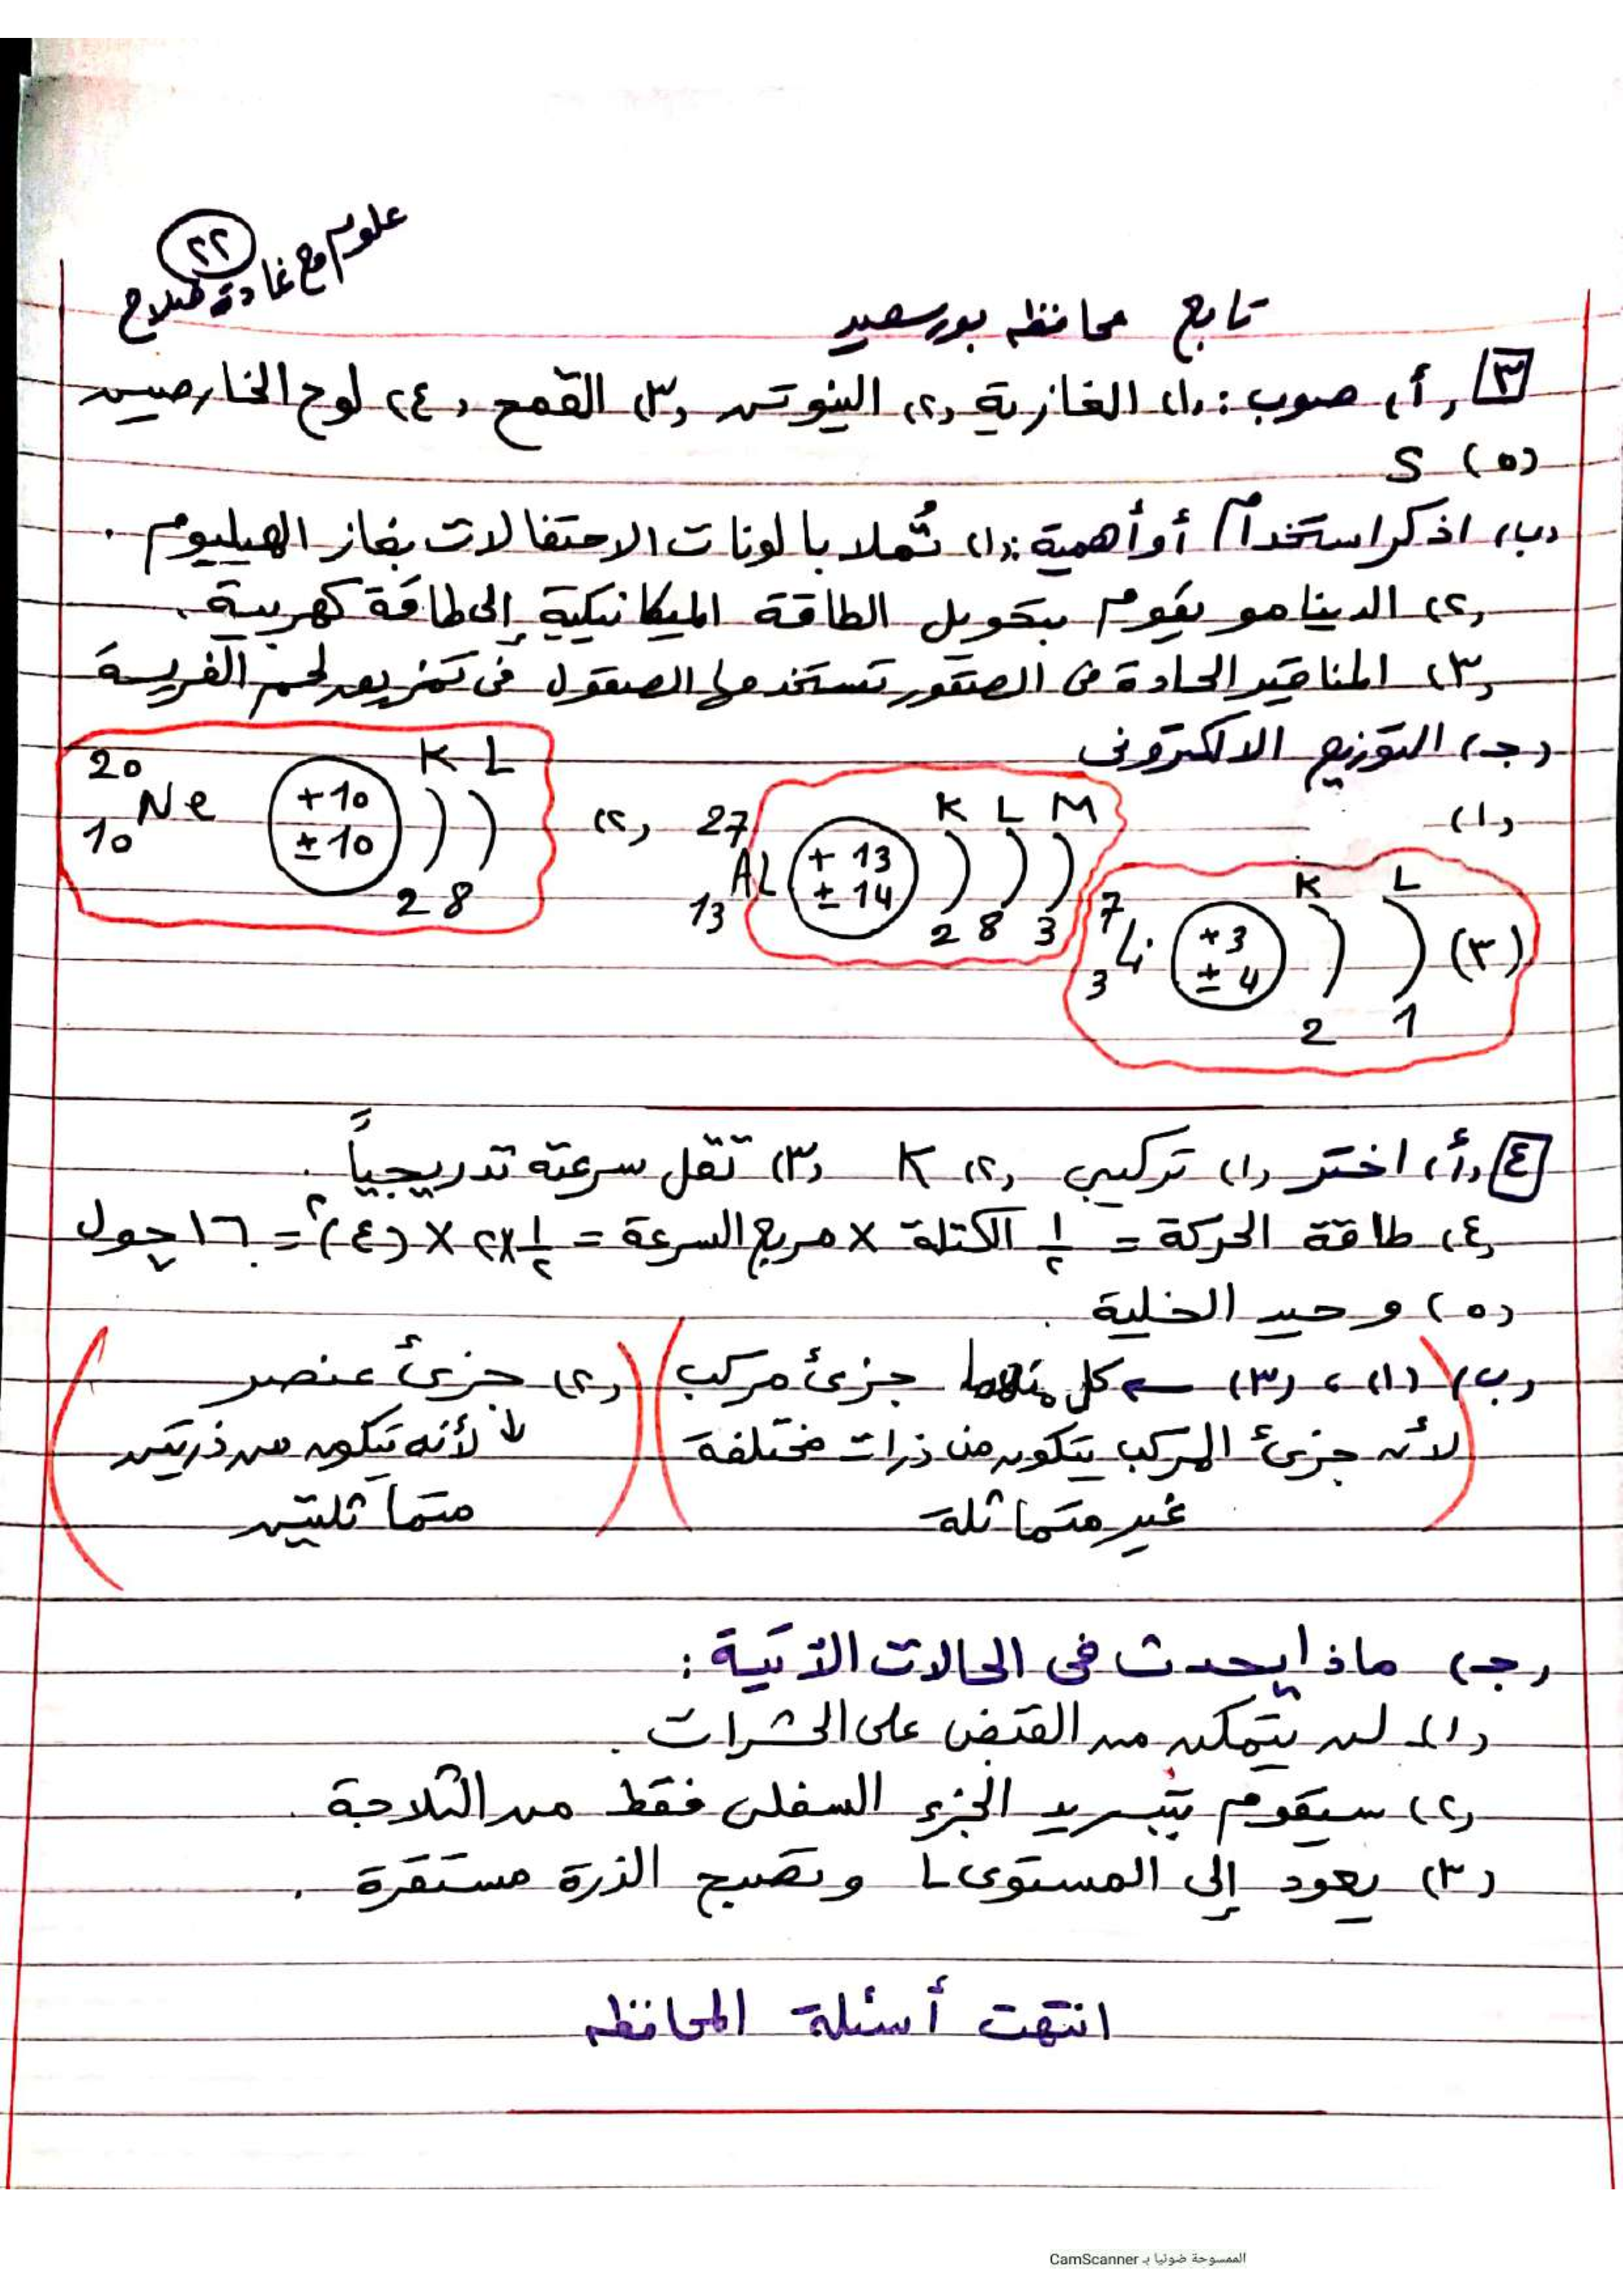 علوم مع غادة صلاح
٢٢
تابع محافظه بورسعيد
٣ (أ) صوب : (١) الغازية (٢) النيوتن (٣) القمح (٤) لوح الخارصين
(٥) S
(ب) اذكر استخدام أو أهمية : (١) تُملا بالونات الاحتفالات بغاز الهيليوم .
(٢) الدينامو يقوم بتحويل الطاقة الميكانيكية إلى طاقة كهربية .
(٣) المناقير الحادة فى الصقور تستخدمها الصقول فى تمزيق لحم الفريسة
(جـ) التوزيع الالكترونى
(١) 27 13 Al +13 ±14 K L M 2 8 3
(٢) 20 10 Ne +10 ±10 K L 2 8
(٣) 7 3 Li +3 ±4 K L 2 1
٤ (أ) اختر (١) تركيبى (٢) K (٣) تقل سرعته تدريجياً .
(٤) طاقة الحركة = ١/٢ الكتلة × مربع السرعة = ١/٢ × ٢ × (٤)٢ = ١٦ جول
(٥) وحيد الخلية .
(ب) (١) ، (٣) ← كل منهما جزئ مركب
لأن جزئ المركب يتكون من ذرات مختلفة
غير متماثلة
(٢) جزئ عنصر
↓ لأنه يتكون من ذرتين
متماثلتين
(جـ) ماذا يحدث فى الحالات الآتية :
(١) لن يتمكن من القبض على الحشرات .
(٢) سيقوم بتبريد الجزء السفلى فقط من الثلاجة .
(٣) يعود إلى المستوى L وتصبح الذرة مستقرة .
انتهت أسئلة المحافظه
الممسوحة ضوئيا بـ CamScanner